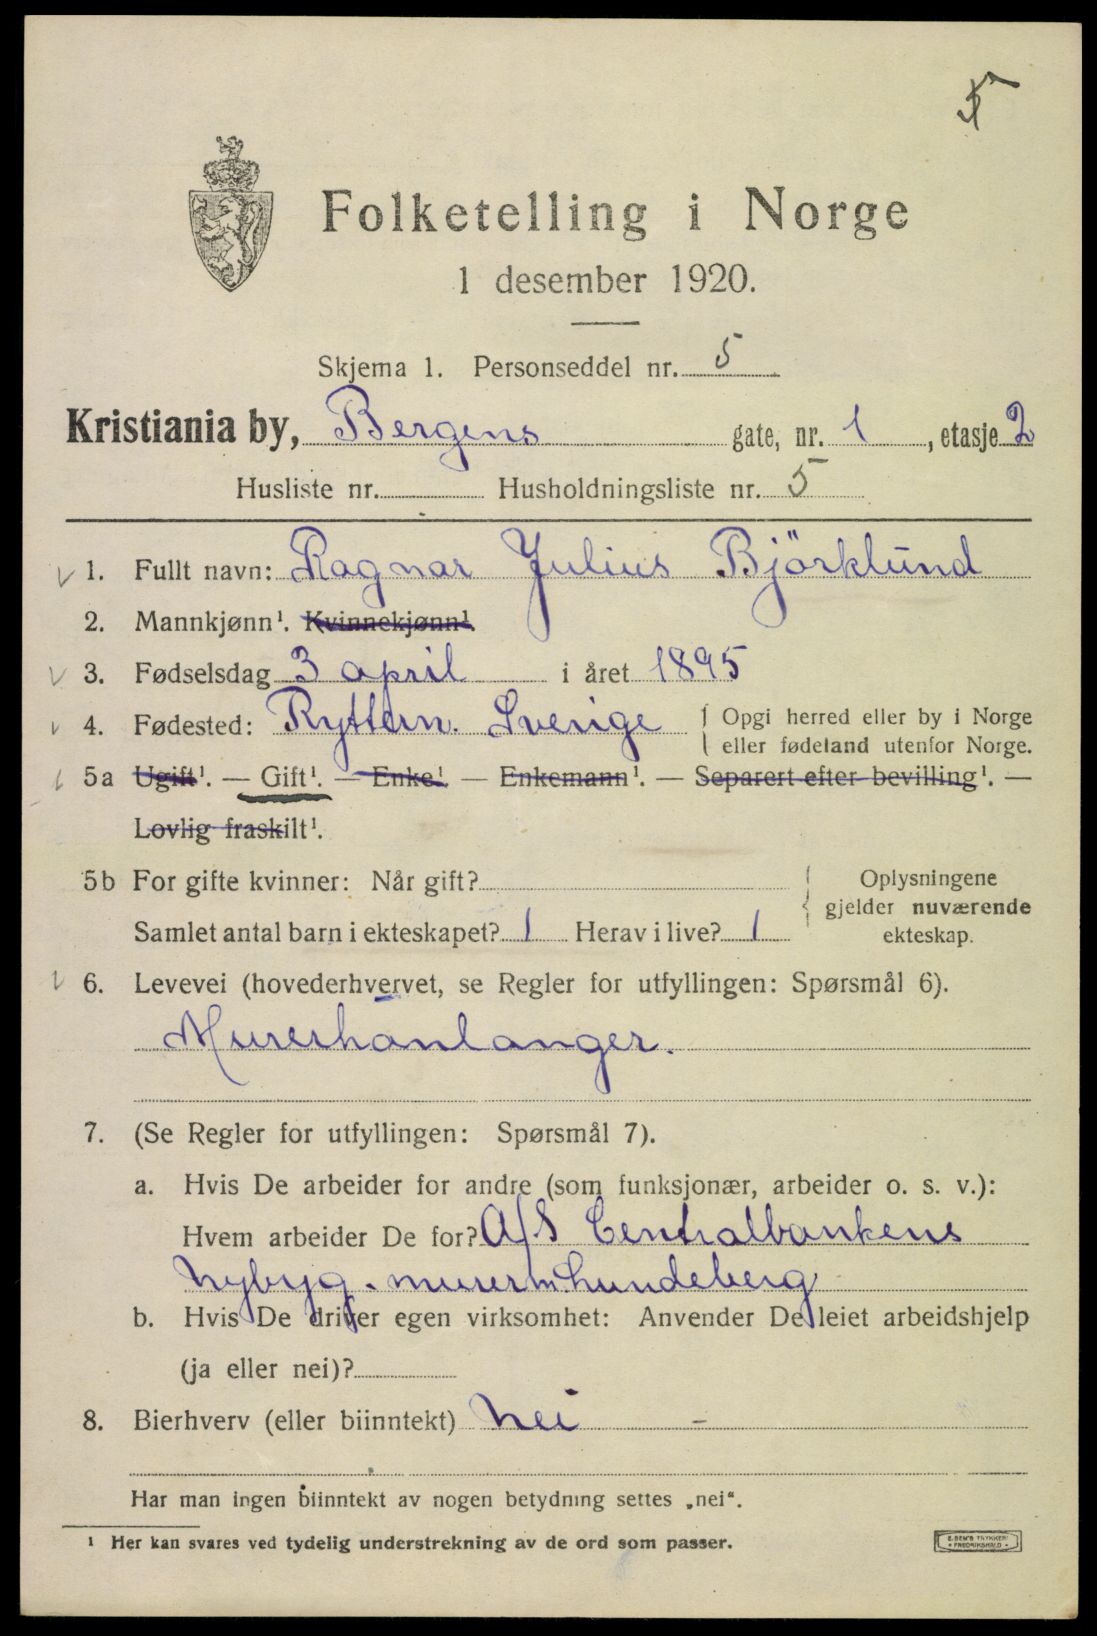 5
Folketelling i Norge
1 desember 1920.
Skjema 1. Personseddel nr. 5
Kristiania by, Bergens gate, nr. 1, etasje 2
Husliste nr. Husholdningsliste nr. 5
1. Fullt navn: Ragnar Julius Björklund
2. Mannkjønn¹. Kvinnekjønn¹.
3. Fødselsdag 3 april i året 1895
4. Fødested: Ryttern. Sverige Opgi herred eller by i Norge
eller fødeland utenfor Norge.
5a Ugift¹. — Gift¹. — Enke¹. — Enkemann¹. — Separert efter bevilling¹. —
Lovlig fraskilt¹.
5b For gifte kvinner: Når gift? Oplysningene
gjelder nuværende
Samlet antal barn i ekteskapet? 1 Herav i live? 1 ekteskap.
6. Levevei (hovederhvervet, se Regler for utfyllingen: Spørsmål 6).
Murerhanlanger.
7. (Se Regler for utfyllingen: Spørsmål 7).
a. Hvis De arbeider for andre (som funksjonær, arbeider o. s. v.):
Hvem arbeider De for? A/S Centralbankens
Nybyg. murerm. hundeberg
b. Hvis De driver egen virksomhet: Anvender De leiet arbeidshjelp
(ja eller nei)?
8. Bierhverv (eller biinntekt) Nei -
Har man ingen biinntekt av nogen betydning settes „nei“.
¹ Her kan svares ved tydelig understrekning av de ord som passer.